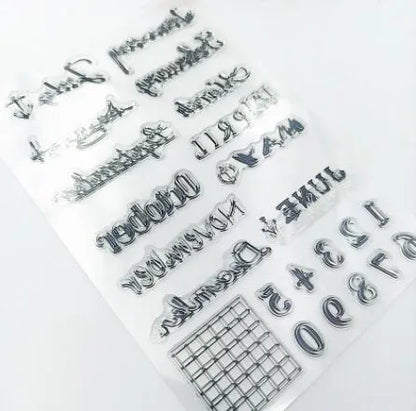 January
February
March
APRIL
MAY
JUNE
July
August
September
October
NOVEMBER
December
1 2 3 4 5
6 7 8 9 0